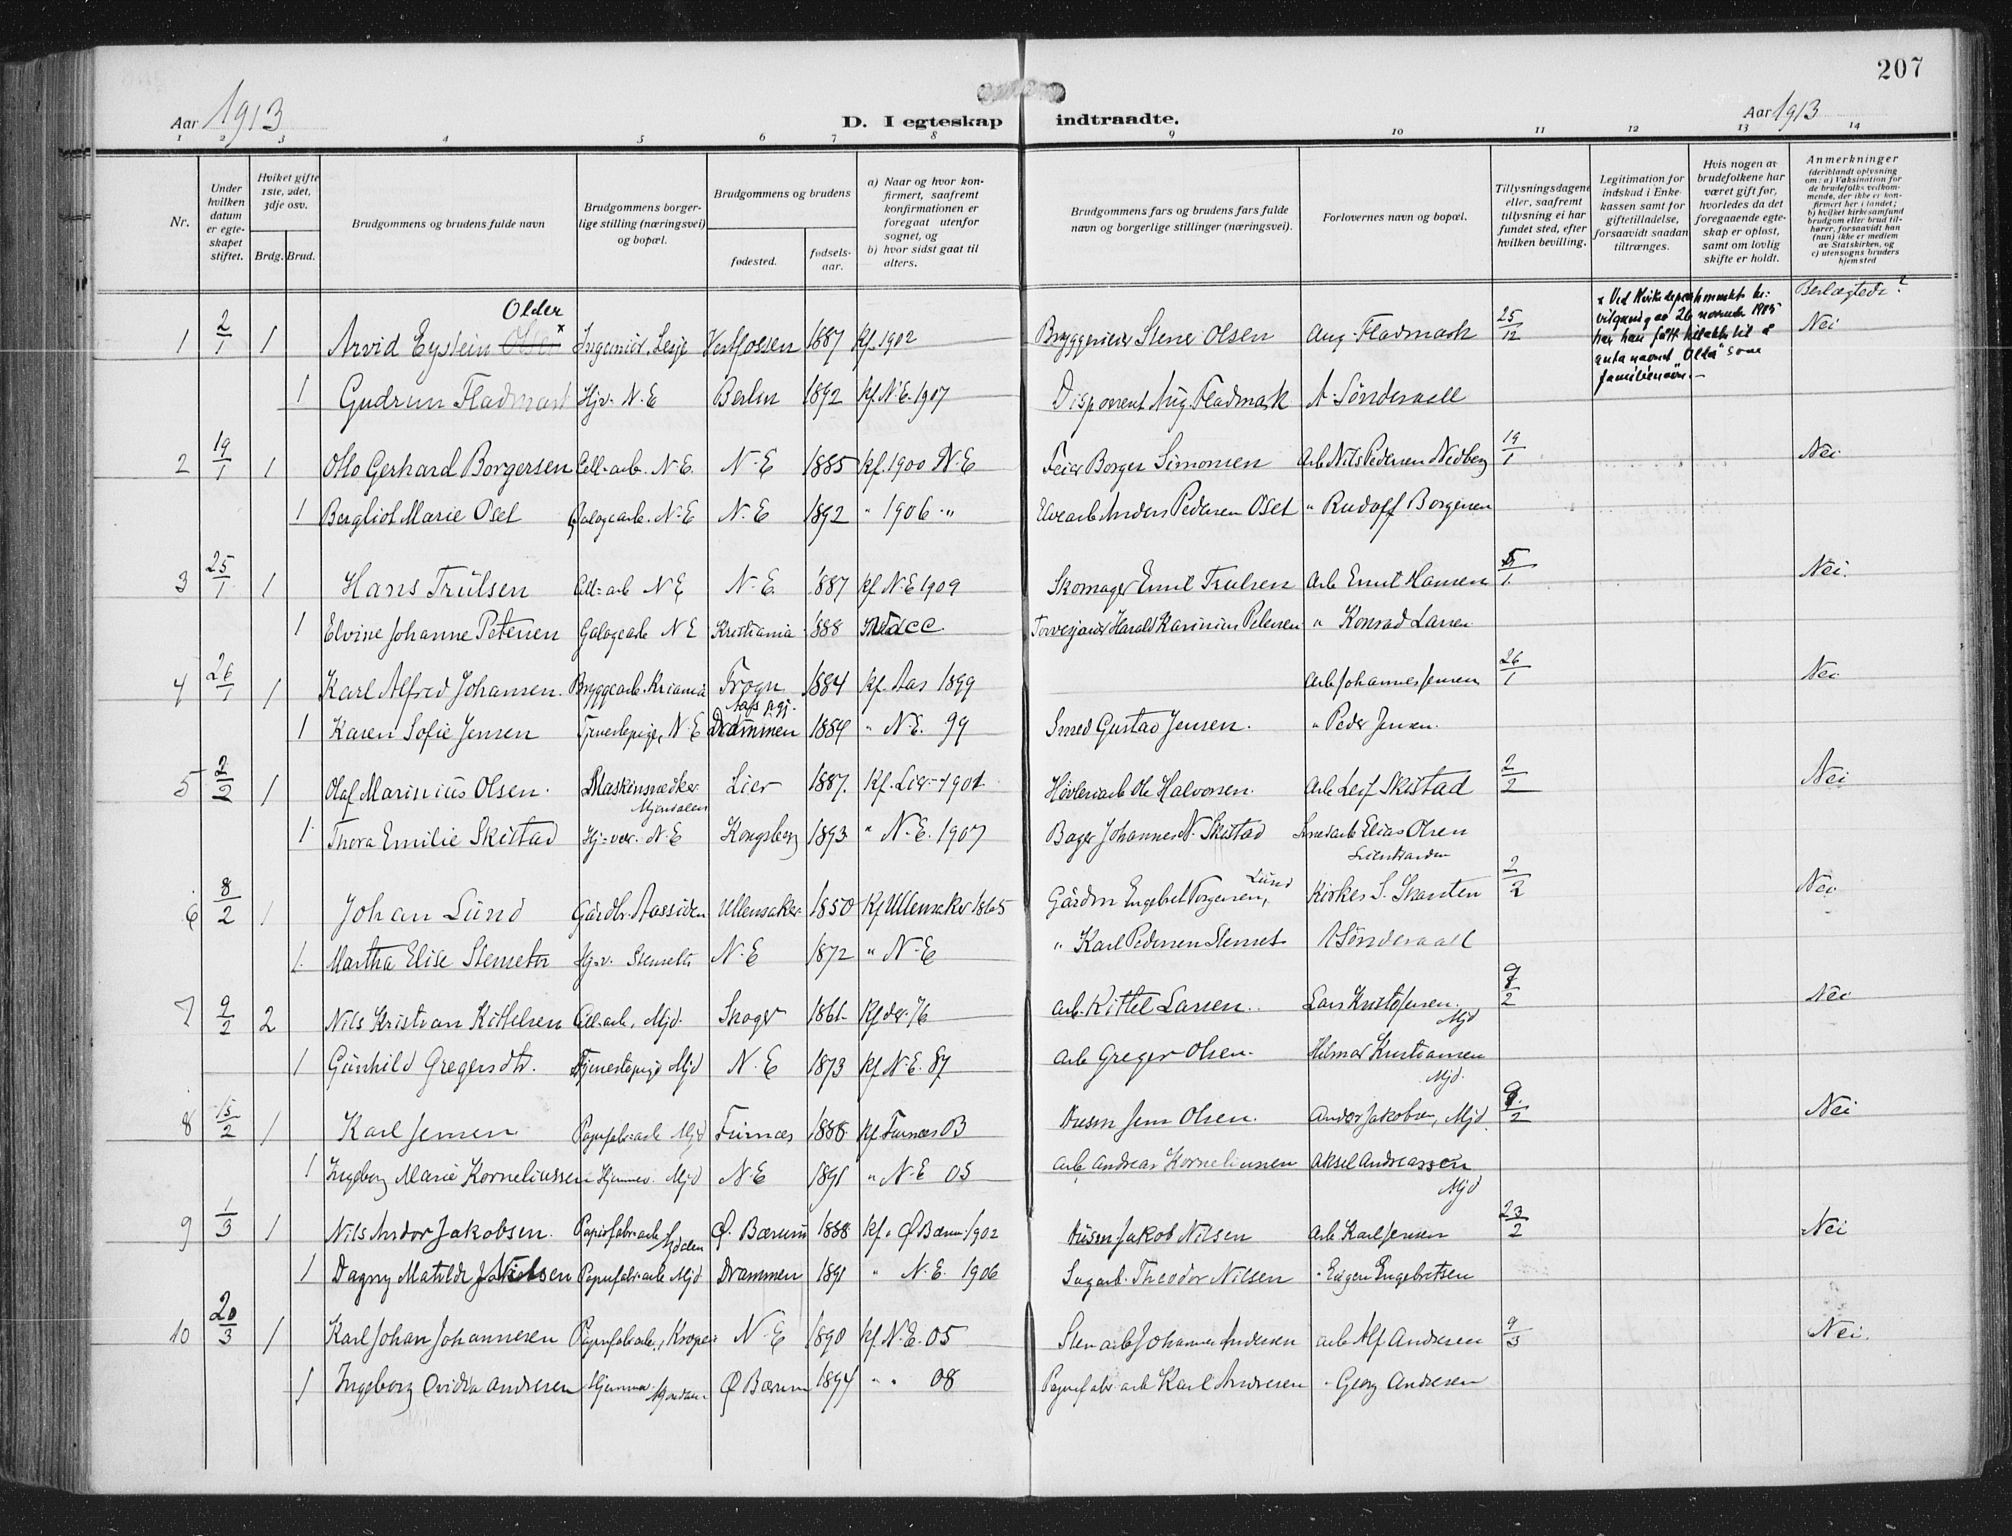 207
Aar 1913
D. I egteskap indtraadte.
Aar 1913
1 2 3 4 5 6 7 8 9 10 11 12 13 14
Nr.
Under hvilken datum er egteskapet stiftet.
Hviket gifte 1ste, 2det, 3dje osv.
Brdg. Brud.
Brudgommens og brudens fulde navn
Brudgommens borgerlige stilling (næringsvei) og bopæl.
Brudgommens og brudens
fødested.
fødselsaar.
a) Naar og hvor konfirmert, saafremt konfirmationen er foregaat utenfor sognet, og
b) hvor sidst gaat til alters.
Brudgommens fars og brudens fars fulde navn og borgerlige stillinger (næringsvei).
Forlovernes navn og bopæl.
Tillysningsdagene eller, saafremt tillysning ei har fundet sted, efter hvilken bevilling.
Legitimation for indskud i Enkekassen samt for giftetilladelse, forsaavidt saadan tiltrænges.
Hvis nogen av brudefolkene har været gift før, hvorledes da det foregaaende egteskap er opløst, samt om lovlig skifte er holdt.
Anmerkninger
(deriblandt oplysning om: a) Vaksination for de brudefolks vedkommende, der ikke er konfirmert her i landet; b) hvilket kirkesamfund brudgom eller brud tilhører, forsaavidt han (hun) ikke er medlem av Statskirken, og c) utensogns bruders hjemsted
Older
1 2/1 1 Arvid Eystein Olsen x Ingeniør, Lesje Vestfossen 1887 kf. 1902 Bryggerieier Stener Olsen Aug. Fladmark 25/12 Nei
Beslægtede?
1 Gudrun Fladmark Hjv. N-E Berlin 1892 kf. N.E. 1907 Disponent Aug. Fladmark A. Sønderaall
2 19/1 1 Otto Gerhard Borgersen Cell-arb. N.E. N-E 1885 kf. 1900 N-E Feier Borger Simonsen Arb Nils Pedersen Nedberg 19/1 Nei
1 Bergliot Marie Oset Galogearb. N-E N-E 1892 " 1906 " Elvearb Anders Pedersen Oset " Rudolf Borgersen
3 25/1 1 Hans Trulsen Cell-arb N E N-E 1887 kf N-E 1909 Skomager Emil Trulsen Arb Ernst Hansen 5/1 Nei.
1 Elvine Johanne Petersen Galogearb N E Kristiania 1888 Harald Karinius Petersen " Konrad Larsen
4 26/1 1 Karl Alfred Johansen. Bryggearb. Kriania Frogn 1884 kf. Aas 1899 Arb Johannes Jensen 26/1 Nei
1 Karen Sofie Jensen Tjenestepige, N-E Drammen 1884 " N.E. 99 Smed Gustav Jensen. " Peder Jensen.
5 2/2 1 Olaf Marinius Olsen. Maskinsnedker Mjøndalen Lier 1887. Kf. Lier 1901 Høvleriarb Ole Halvorsen. Arb Leif Skistad 2/2 Nei
1 Thora Emilie Skistad Hj-ver. N-E Kongsberg 1893 " N-E. 1907 Bager Johannes N. Skistad Elias Olsen
6 8/2 1 Johan Lund Gårdbr. Aassiden Ullensaker 1850 Kf Ullensaker 1865 Gårdm Engebret Torgersen, Lund Kirkes. S. Skansten 2/2 Nei
1 Martha Elise Stenseth Hj.v. Stenseth N.E 1872 " N-E " Karl Pedersen Stenset A Sønderaall
7 9/2 2 Nils Kristian Kittelsen Cell-arb. Mjd. Skoger 1861 Kf der 76 arb. Kittel Larsen. Lars Kristofersen. Mjd 9/2 Nei
1 Gunhild Gregersdtr. Tjenestepige Mjd N.E 1873 kf N-E. 87 arb Greger Olsen. Hilmar Kristiansen Mjd.
8 15/2 1 Karl Jensen Papirfabr-arb Mjd Furnæs 1888 kf Furnæs 03 Husm Jens Olsen. Andor Jakobsen, Mjd. 9/2 Nei
1 Ingeborg Marie Korneliussen Hjemmev. Mjd N-E 1891 " N-E 05 arb Andreas Korneliussen Aksel Andreassen Mjd
9 1/3 1 Nils Andor Jakobsen. Papirfabr-arb Mjdalen Ø. Bærum 1888 kf. Ø Bærum 1902 Husm Jakob Nilsen Arb Karl Jensen 23/2 Nei
1 Dagny Matilde Nielsen Papirfabr-arb Mjd Drammen 1891 " N.E. 1906 Sagarb. Theodor Nilsen " Eugen Engebretsen
10 20/3 1 Karl Johan Johannesen Papirfabr-arb., N-E 1890 kf. N.E. 05 Sten arb Johannes Andersen arb Alf Andresen 9/3 Nei.
1 Ingeborg Ovidia Andresen Hjemme Mjøndalen Ø Bærum 1894 " " 08 Papirfabr arb Karl Andresen " Georg Andresen